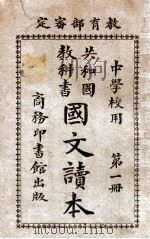 教育部審定
中學校用
共和國教科書
國文讀本
第一冊
商務印書館出版